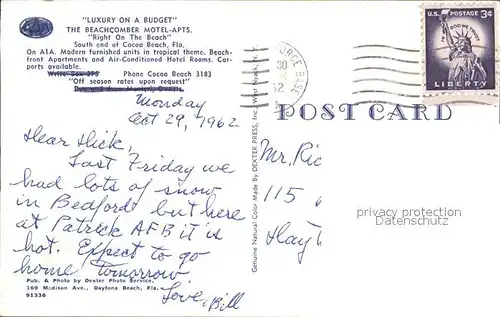 "LUXURY ON A BUDGET"
THE BEACHCOMBER MOTEL-APTS.
"Right On The Beach"
South end of Cocoa Beach, Fla.
On A1A. Modern furnished units in tropical theme. Beach-
front Apartments and Air-Conditioned Hotel Rooms. Car-
ports available.
Write Box 275 Phone Cocoa Beach 3183
"Off season rates upon request"
Monday
Oct 29, 1962
Dear Dick,
Last Friday we
had lots of snow
in Bedford but here
at Patrick AFB it is
hot. Expect to go
home tomorrow
Love, Bill
Pub. & Photo by Dexter Photo Service,
169 Madison Ave., Daytona Beach, Fla.
91336
Genuine Natural Color Made By DEXTER PRESS, Inc., West Nyack, N.Y.
30
BASE
POST CARD
U.S. POSTAGE 3¢
IN GOD WE TRUST
LIBERTY
Mr. Ric
115
Hay
privacy protection
Datenschutz